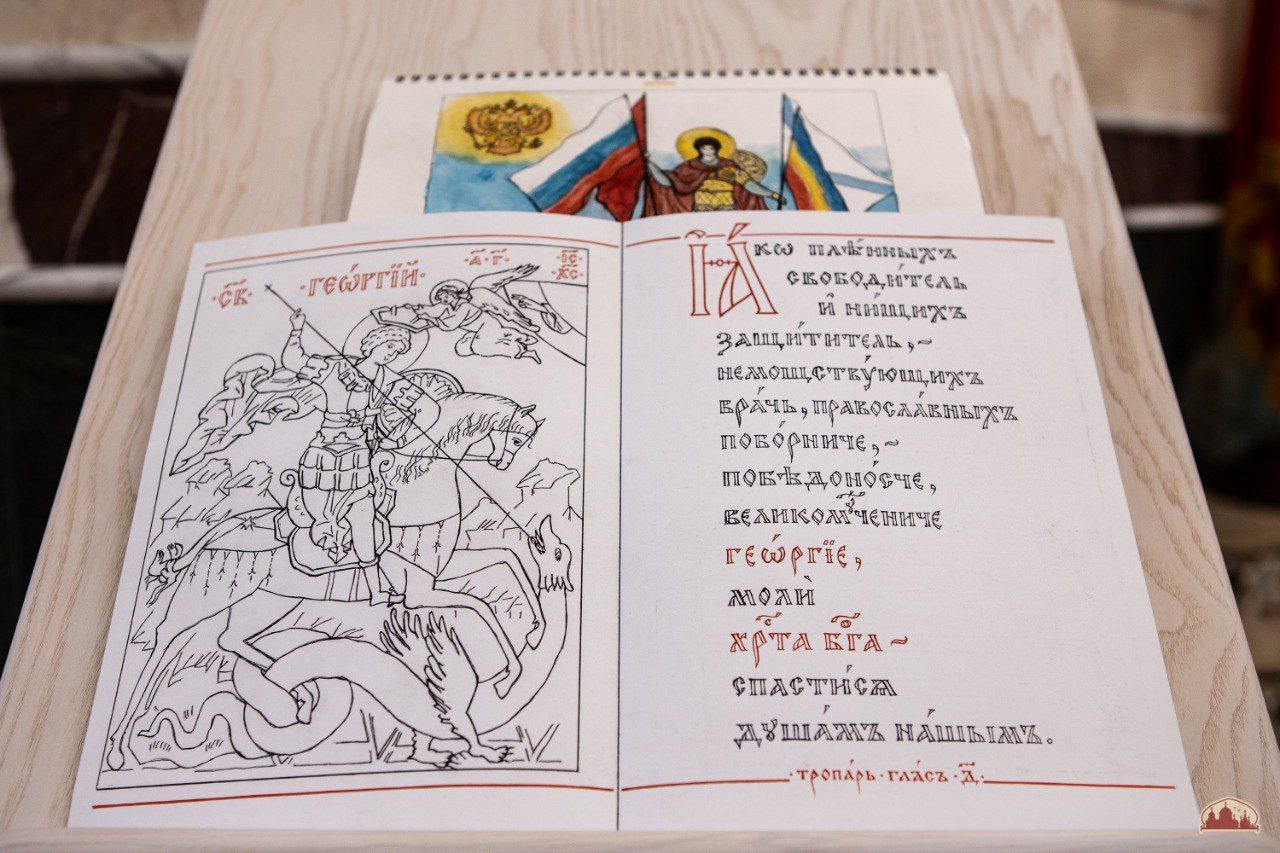 СТ҃Ы
·ГЕѠ́РГЇЙ·
·А҃·Г҃·
І҃С
Х҃С
Ꙗ҆́кѡ плѣ́нныхъ
свободи́тель
и҆ ни́щихъ
защи́титель,~
немощству́ющихъ
вра́чь, правосла́вныхъ
побо́рниче,~
побѣдоно́сче,
великомꙋ́чениче
гео́ргїе,
молѝ
хрⷭ҇та бг҃а~
спасти́сѧ
дꙋша́мъ на́шымъ.
·тропа́рь·гла́съ·д҃·